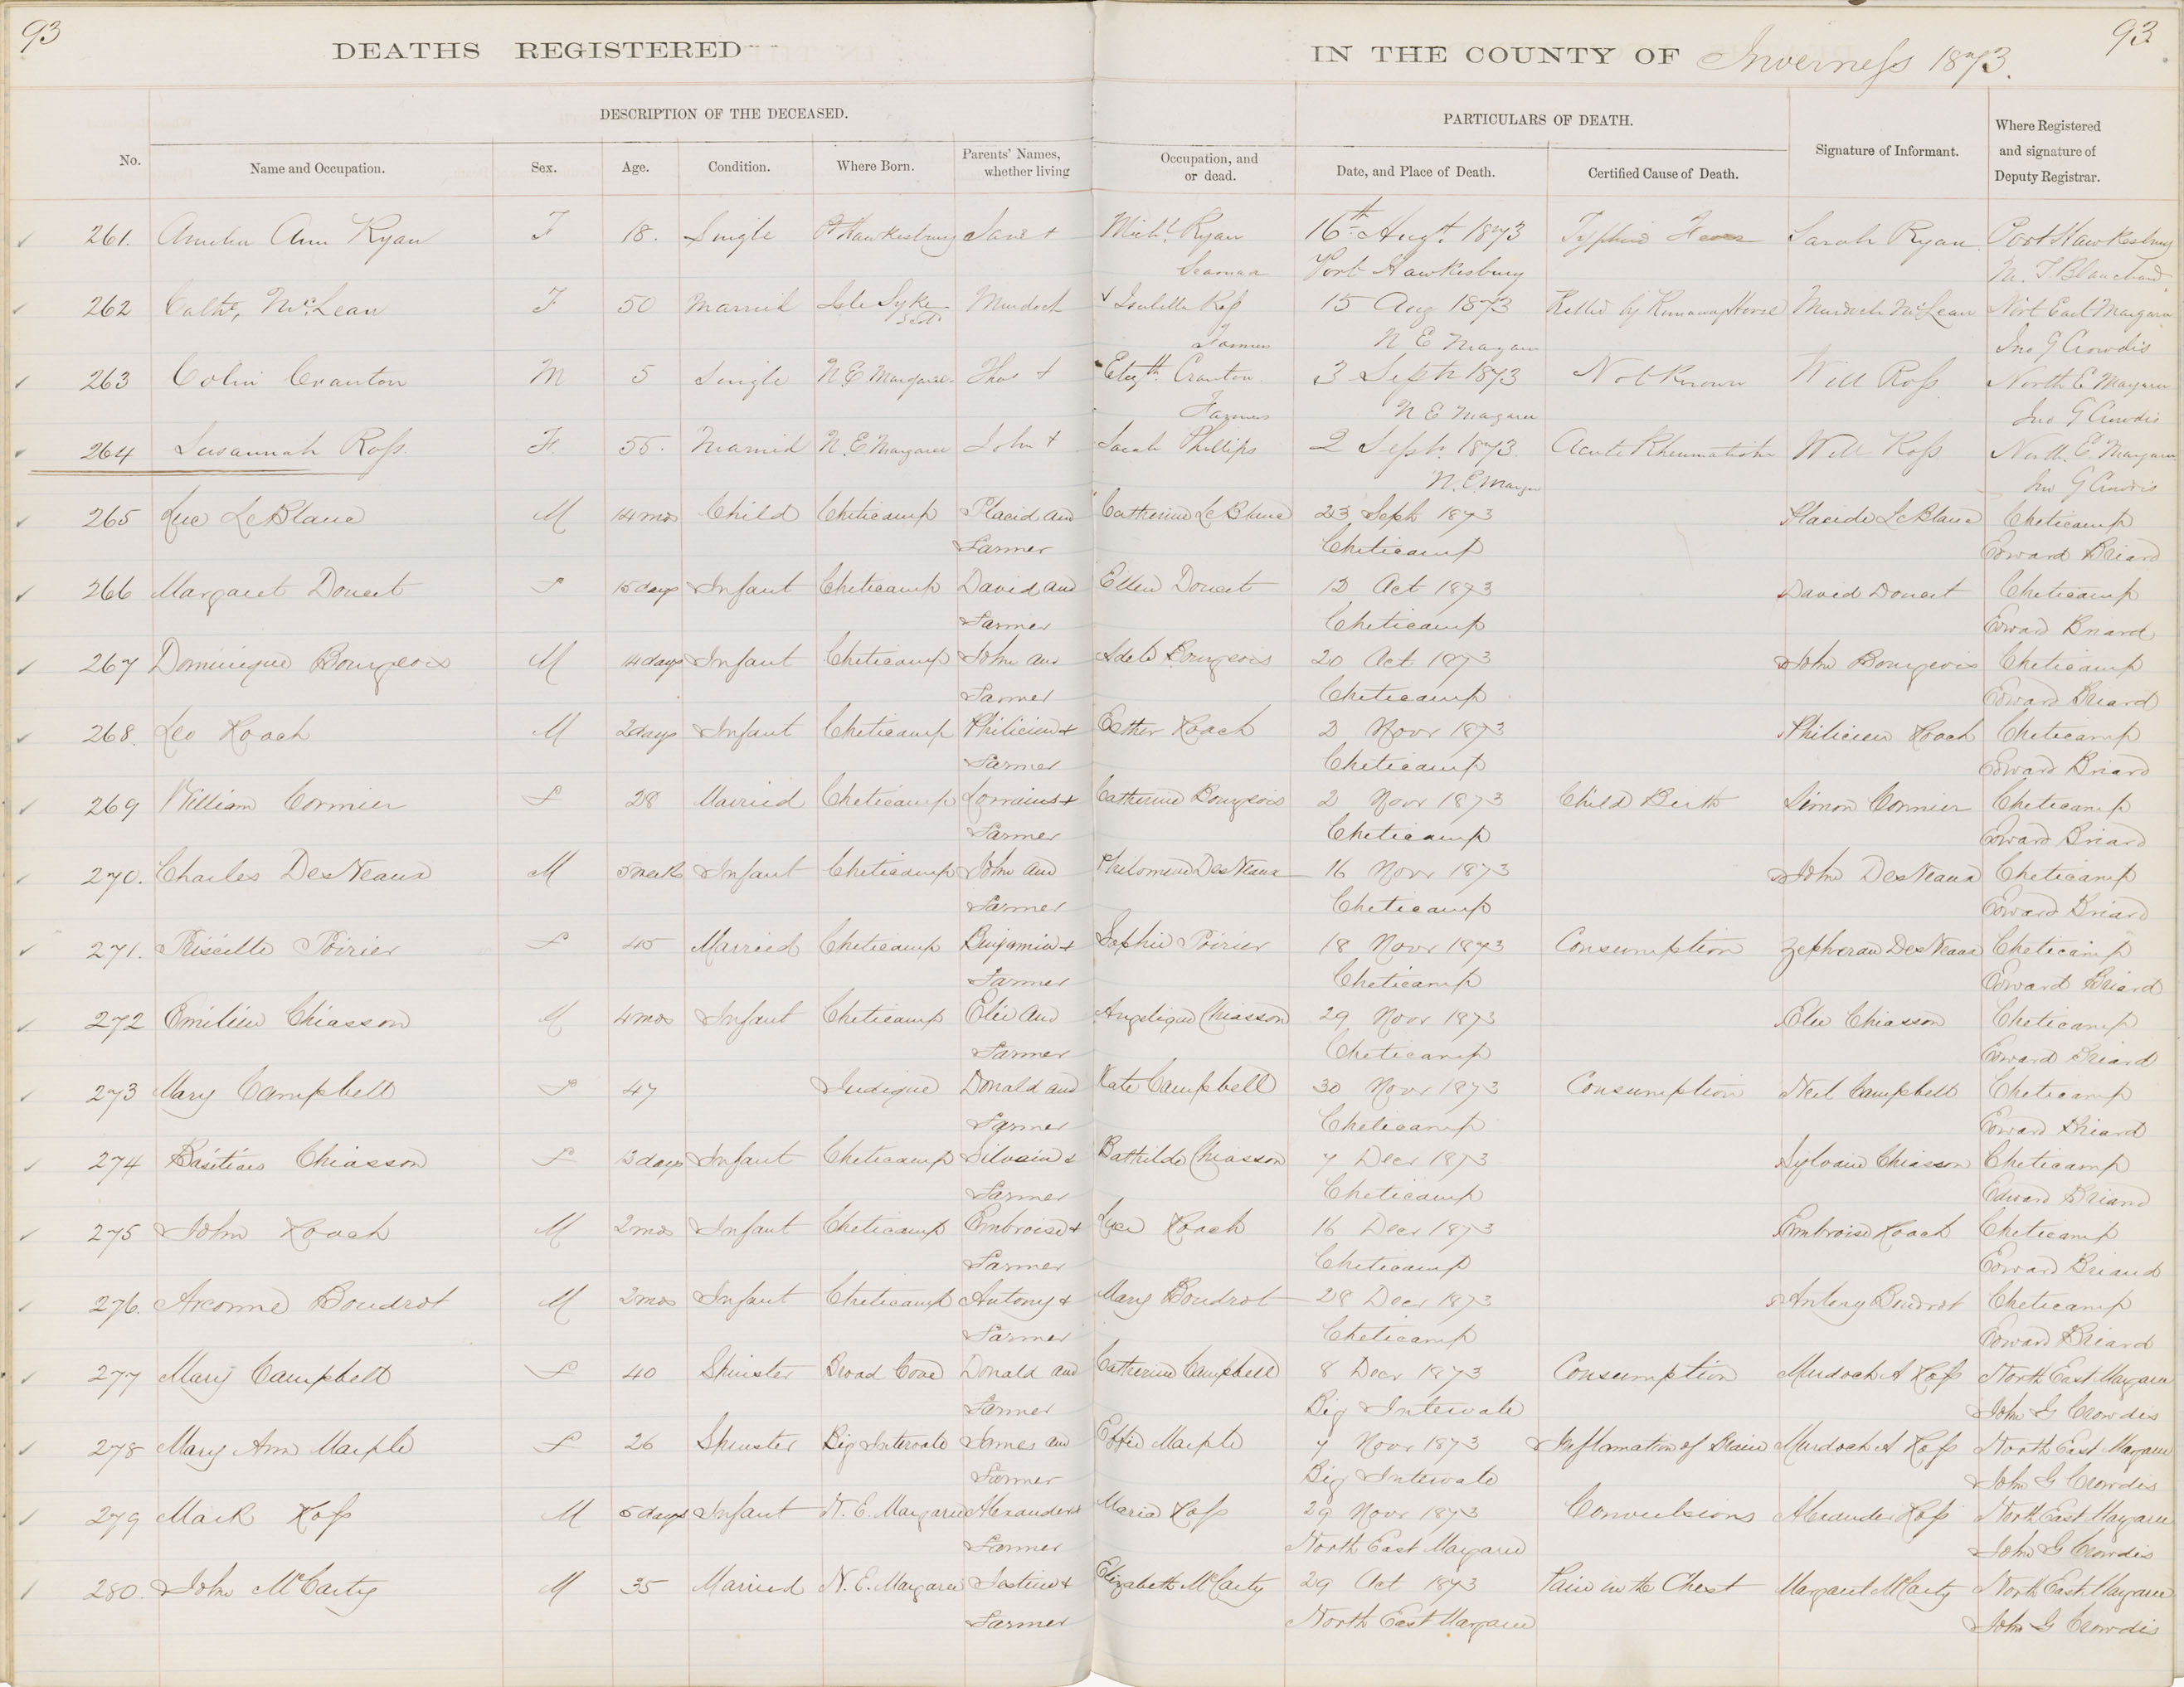 93
93
DEATHS REGISTERED IN THE COUNTY OF Inverness 1873.
DESCRIPTION OF THE DECEASED. PARTICULARS OF DEATH.
No. Name and Occupation. Sex. Age. Condition. Where Born. Parents' Names, whether living Occupation, and or dead. Date, and Place of Death. Certified Cause of Death. Signature of Informant. Where Registered and signature of Deputy Registrar.
261. Amelia Ann Ryan F 18. Single Pt Hawkesbury Jane + Michl Ryan 16th Augt. 1873 Typhoid Fever Sarah Ryan Port Hawkesbury
Seaman Port Hawkesbury M. J Blanchard
262 Cathe, McLean F 50 Married Isle Syke Scotd Murdoch + Isabella Ross 15 Aug 1873 Killed by Runaway Horse Murdoch McLean Nort East Margaree
Farmer N E Margaree Jno G Crowdis
263 Colin Cranton M 5 Single N.E Margaree Thos + Elizth Cranton 3 Sept 1873 Not Known Will Ross North E Margaree
Farmer N E Margaree Jno G Crowdis
264 Susannah Ross F. 55. Married N.E Margaree John + Sarah Phillips 2 Sept. 1873. Acute Rheumatism Will Ross North. E Margaree
N.E. Margaree Jno G Crowdis
265 Luc LeBlanc M 14 mos Child Cheticamp Placid and Catherine LeBlanc 23 Sept 1873 Placide LeBlanc Cheticamp
Farmer Cheticamp Edward Briard
266 Margaret Doucet F 15 days Infant Cheticamp David and Ellen Doucet 12 Oct 1873 David Doucet Cheticamp
Farmer Cheticamp Edward Briard
267 Dominique Bourgeois M 14 days Infant Cheticamp John and Adele Bourgeois 20 Oct 1873 John Bourgeois Cheticamp
Farmer Cheticamp Edward Briard
268. Leo Roach M 2 days Infant Cheticamp Philicien + Esther Roach 2 Novr 1873 Philicien Roach Cheticamp
Farmer Cheticamp Edward Briard
269 William Cormier F 28 Married Cheticamp Lorraine + Catherine Bourgeois 2 Novr 1873 Child Birth Simon Cormier Cheticamp
Farmer Cheticamp Edward Briard
270. Charles DesVeaux M 5 week Infant Cheticamp John and Philomene DesVeaux 16 Novr 1873 John DesVeaux Cheticamp
Farmer Cheticamp Edward Briard
271. Priscille Poirier F 45 Married Cheticamp Benjamin + Sophie Poirier 18 Novr 1873 Consumption Zepherau DesVeaux Cheticamp
Farmer Cheticamp Edward Briard
272 Emilien Chiasson M 4 mos Infant Cheticamp Elie and Angelique Chiasson 29 Novr 1873 Elie Chiasson Cheticamp
Farmer Cheticamp Edward Briard
273 Mary Campbell F 47 Judique Donald and Kate Campbell 30 Novr 1873 Consumption Neil Campbell Cheticamp
Farmer Cheticamp Edward Briard
274 Chiasson F 13 days Infant Cheticamp Silvain + Bathilde Chiasson 7 Decr 1873 Sylvain Chiasson Cheticamp
Farmer Cheticamp Edward Briard
275 John Roach M 2 mos Infant Cheticamp Embroise + Luce Roach 16 Decr 1873 Embroise Roach Cheticamp
Farmer Cheticamp Edward Briard
276. Boudrot M 2 mos Infant Cheticamp Antony + Mary Boudrot 28 Decr 1873 Antony Boudrot Cheticamp
Farmer Cheticamp Edward Briard
277 Mary Campbell F 40 Spinster Broad Cove Donald and Catherine Campbell 8 Decr 1873 Consumption Murdoch A Ross North East Margaree
Farmer Big Intervale John G Crowdis
278 Mary Ann Maiple F 26 Spinster Big Intervale James and Effie Maiple 7 Novr 1873 Inflamation of Brain Murdoch A Ross North East Margaree
Farmer Big Intervale John G Crowdis
279 Mark Ross M 5 days Infant N. E. Margaree Alexander + Maria Ross 29 Novr 1873 Convulsions Alexander Ross North East Margaree
Farmer North East Margaree John G Crowdis
280. John McCarty M 35 Married N. E. Margaree Justin + Elizabeth McCarty 29 Oct 1873 Pain in the Chest Margaret McCarty North East Margaree
Farmer North East Margaree John G Crowdis